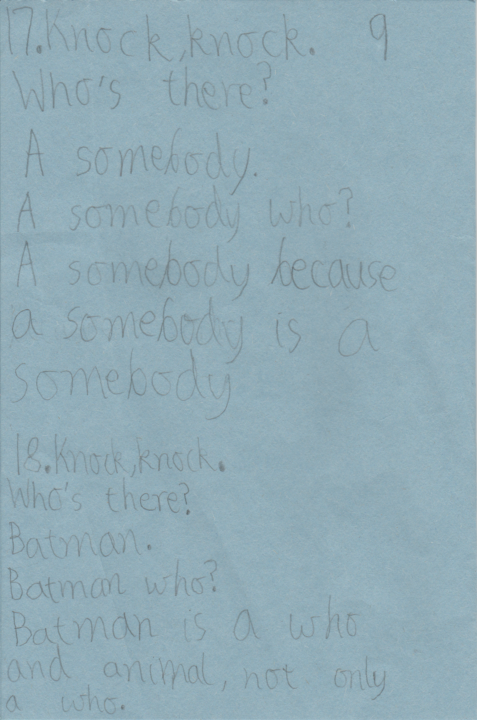 17.Knock,knock. 9
Who's there?
A somebody.
A somebody who?
A somebody because
a somebody is a
somebody
18.Knock,knock.
Who's there?
Batman.
Batman who?
Batman is a who
and animal, not only
a who.